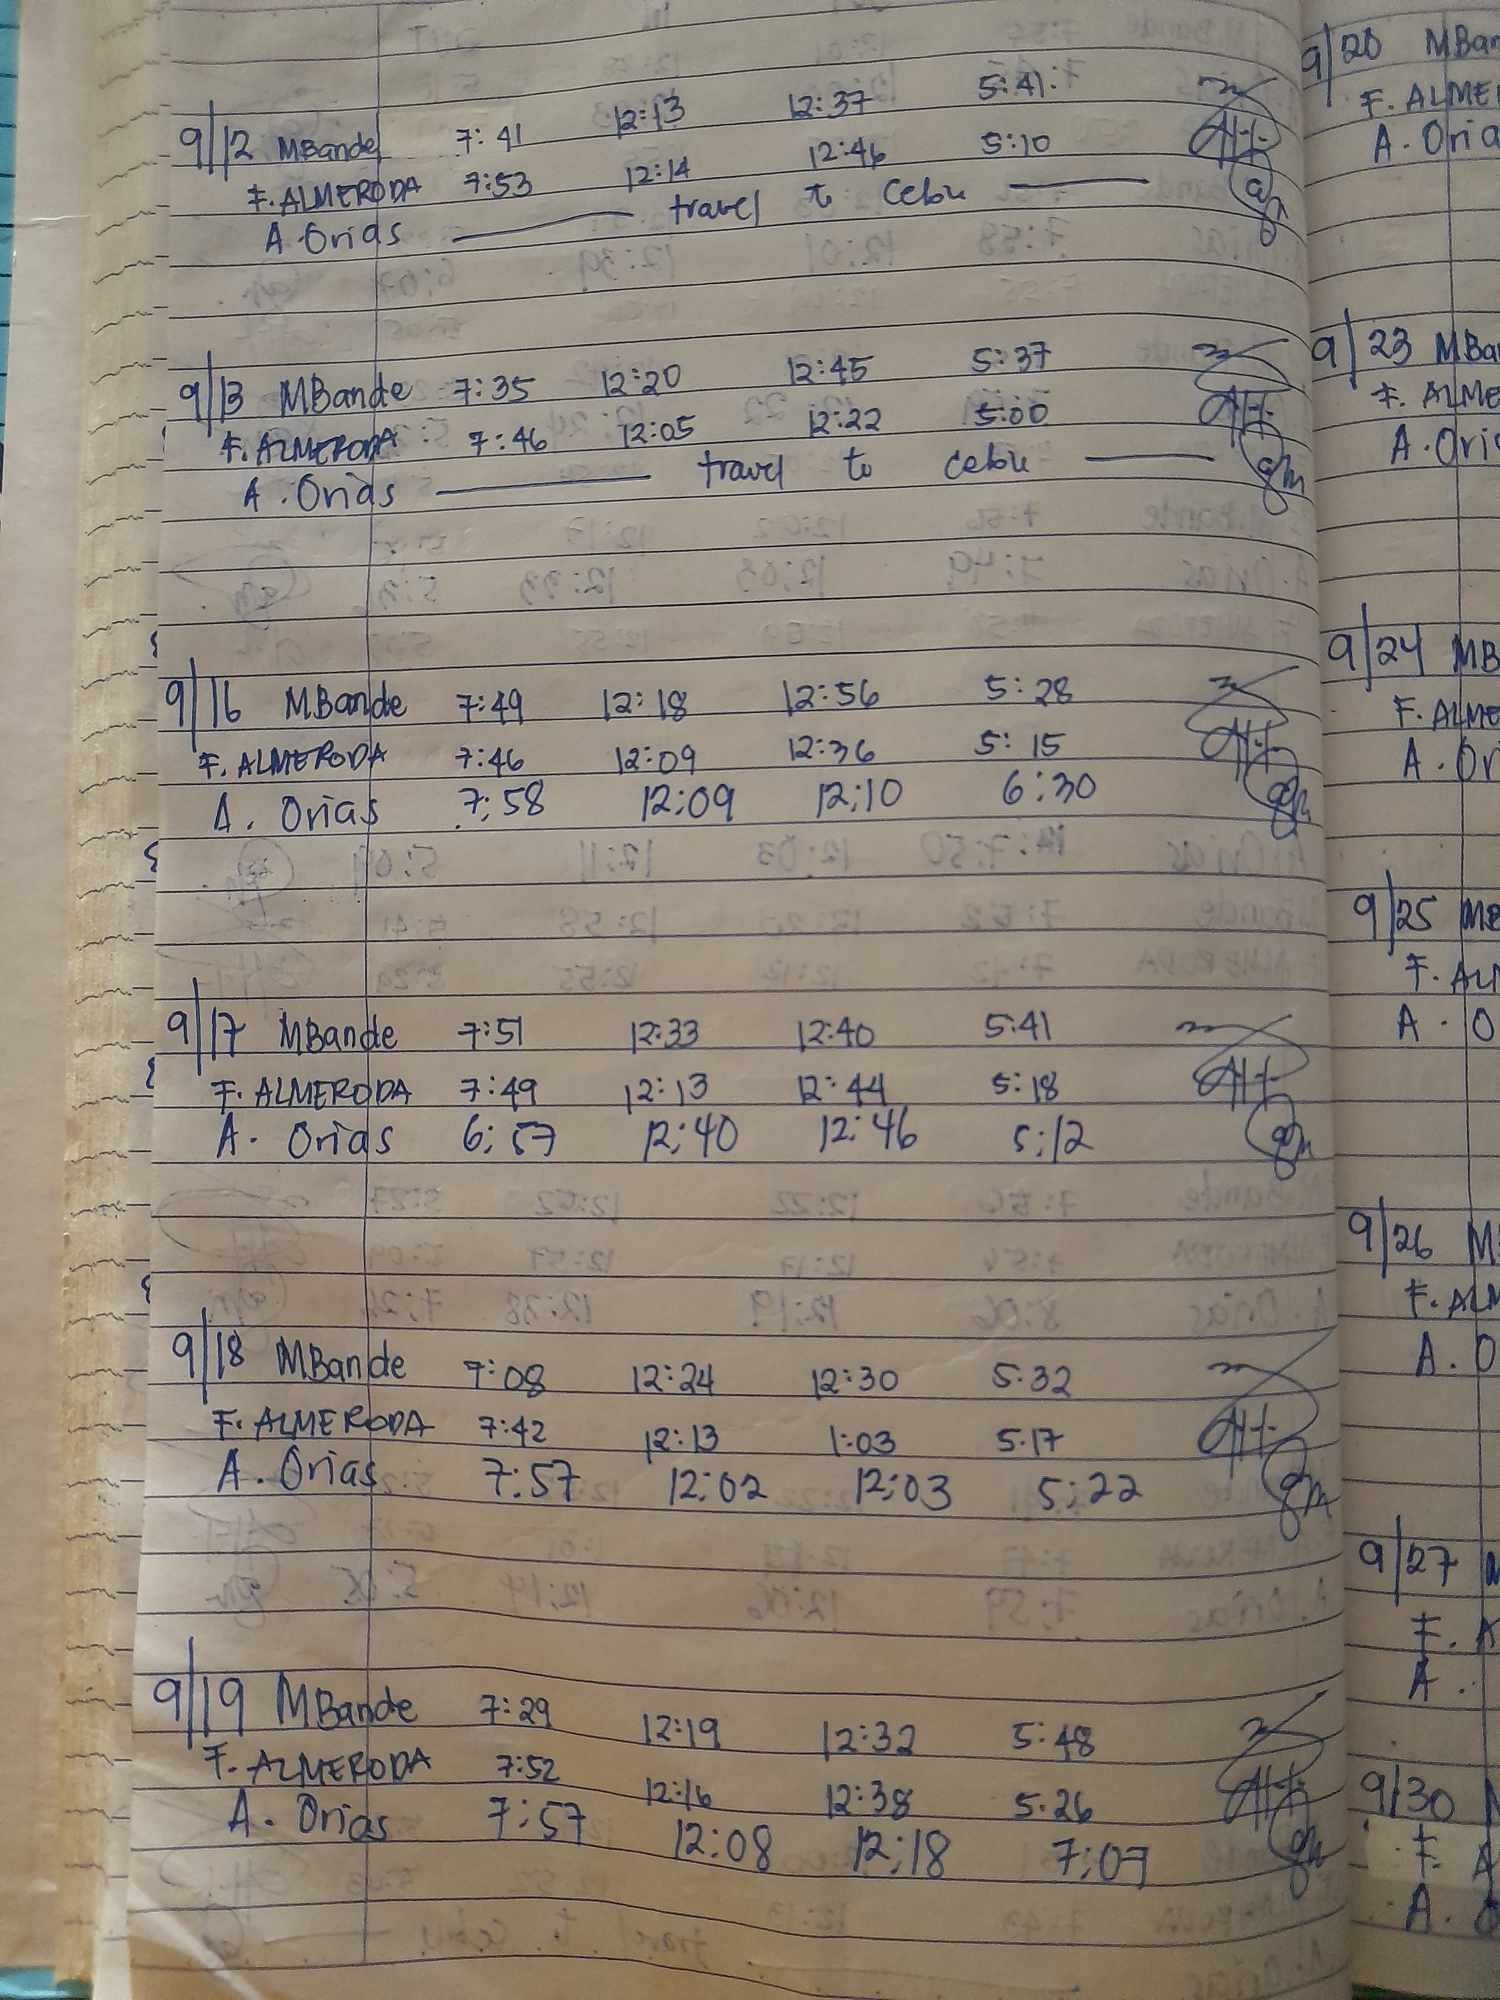 9/12 MBande 7:41 12:13 12:37 5:41.
F. ALMERODA 7:53 12:14 12:46 5:10
A. Orias travel to Cebu
9/13 MBande 7:35 12:20 12:45 5:37
F. ALMERODA 7:46 12:05 12:22 5:00
A. Orias travel to cebu
9/16 MBande 7:49 12:18 12:56 5:28
F. ALMERODA 7:46 12:09 12:36 5:15
A. Orias 7:58 12:09 12:10 6:30
9/17 MBande 7:51 12:33 12:40 5:41
F. ALMERODA 7:49 12:13 12:44 5:18
A. Orias 6:57 12:40 12:46 5:12
9/18 MBande 7:08 12:24 12:30 5.32
F. ALMERODA 7:42 12:13 1:03 5.17
A. Orias 7:57 12:02 12:03 5:22
9/19 MBande 7:29 12:19 12:32 5:48
F. ALMERODA 7:52 12:16 12:38 5.26
A. Orias 7:57 12:08 12:18 7:07
9/20 MBan
F. ALME
A. Oria
9/23 MBa
F. ALME
A. Oria
9/24 MB
F. ALME
A. Or
9/25 MB
F. AL
A. O
9/26 M
F. ALM
A. O
9/27 M
F. A
A.
9/30 M
F. A
A. O